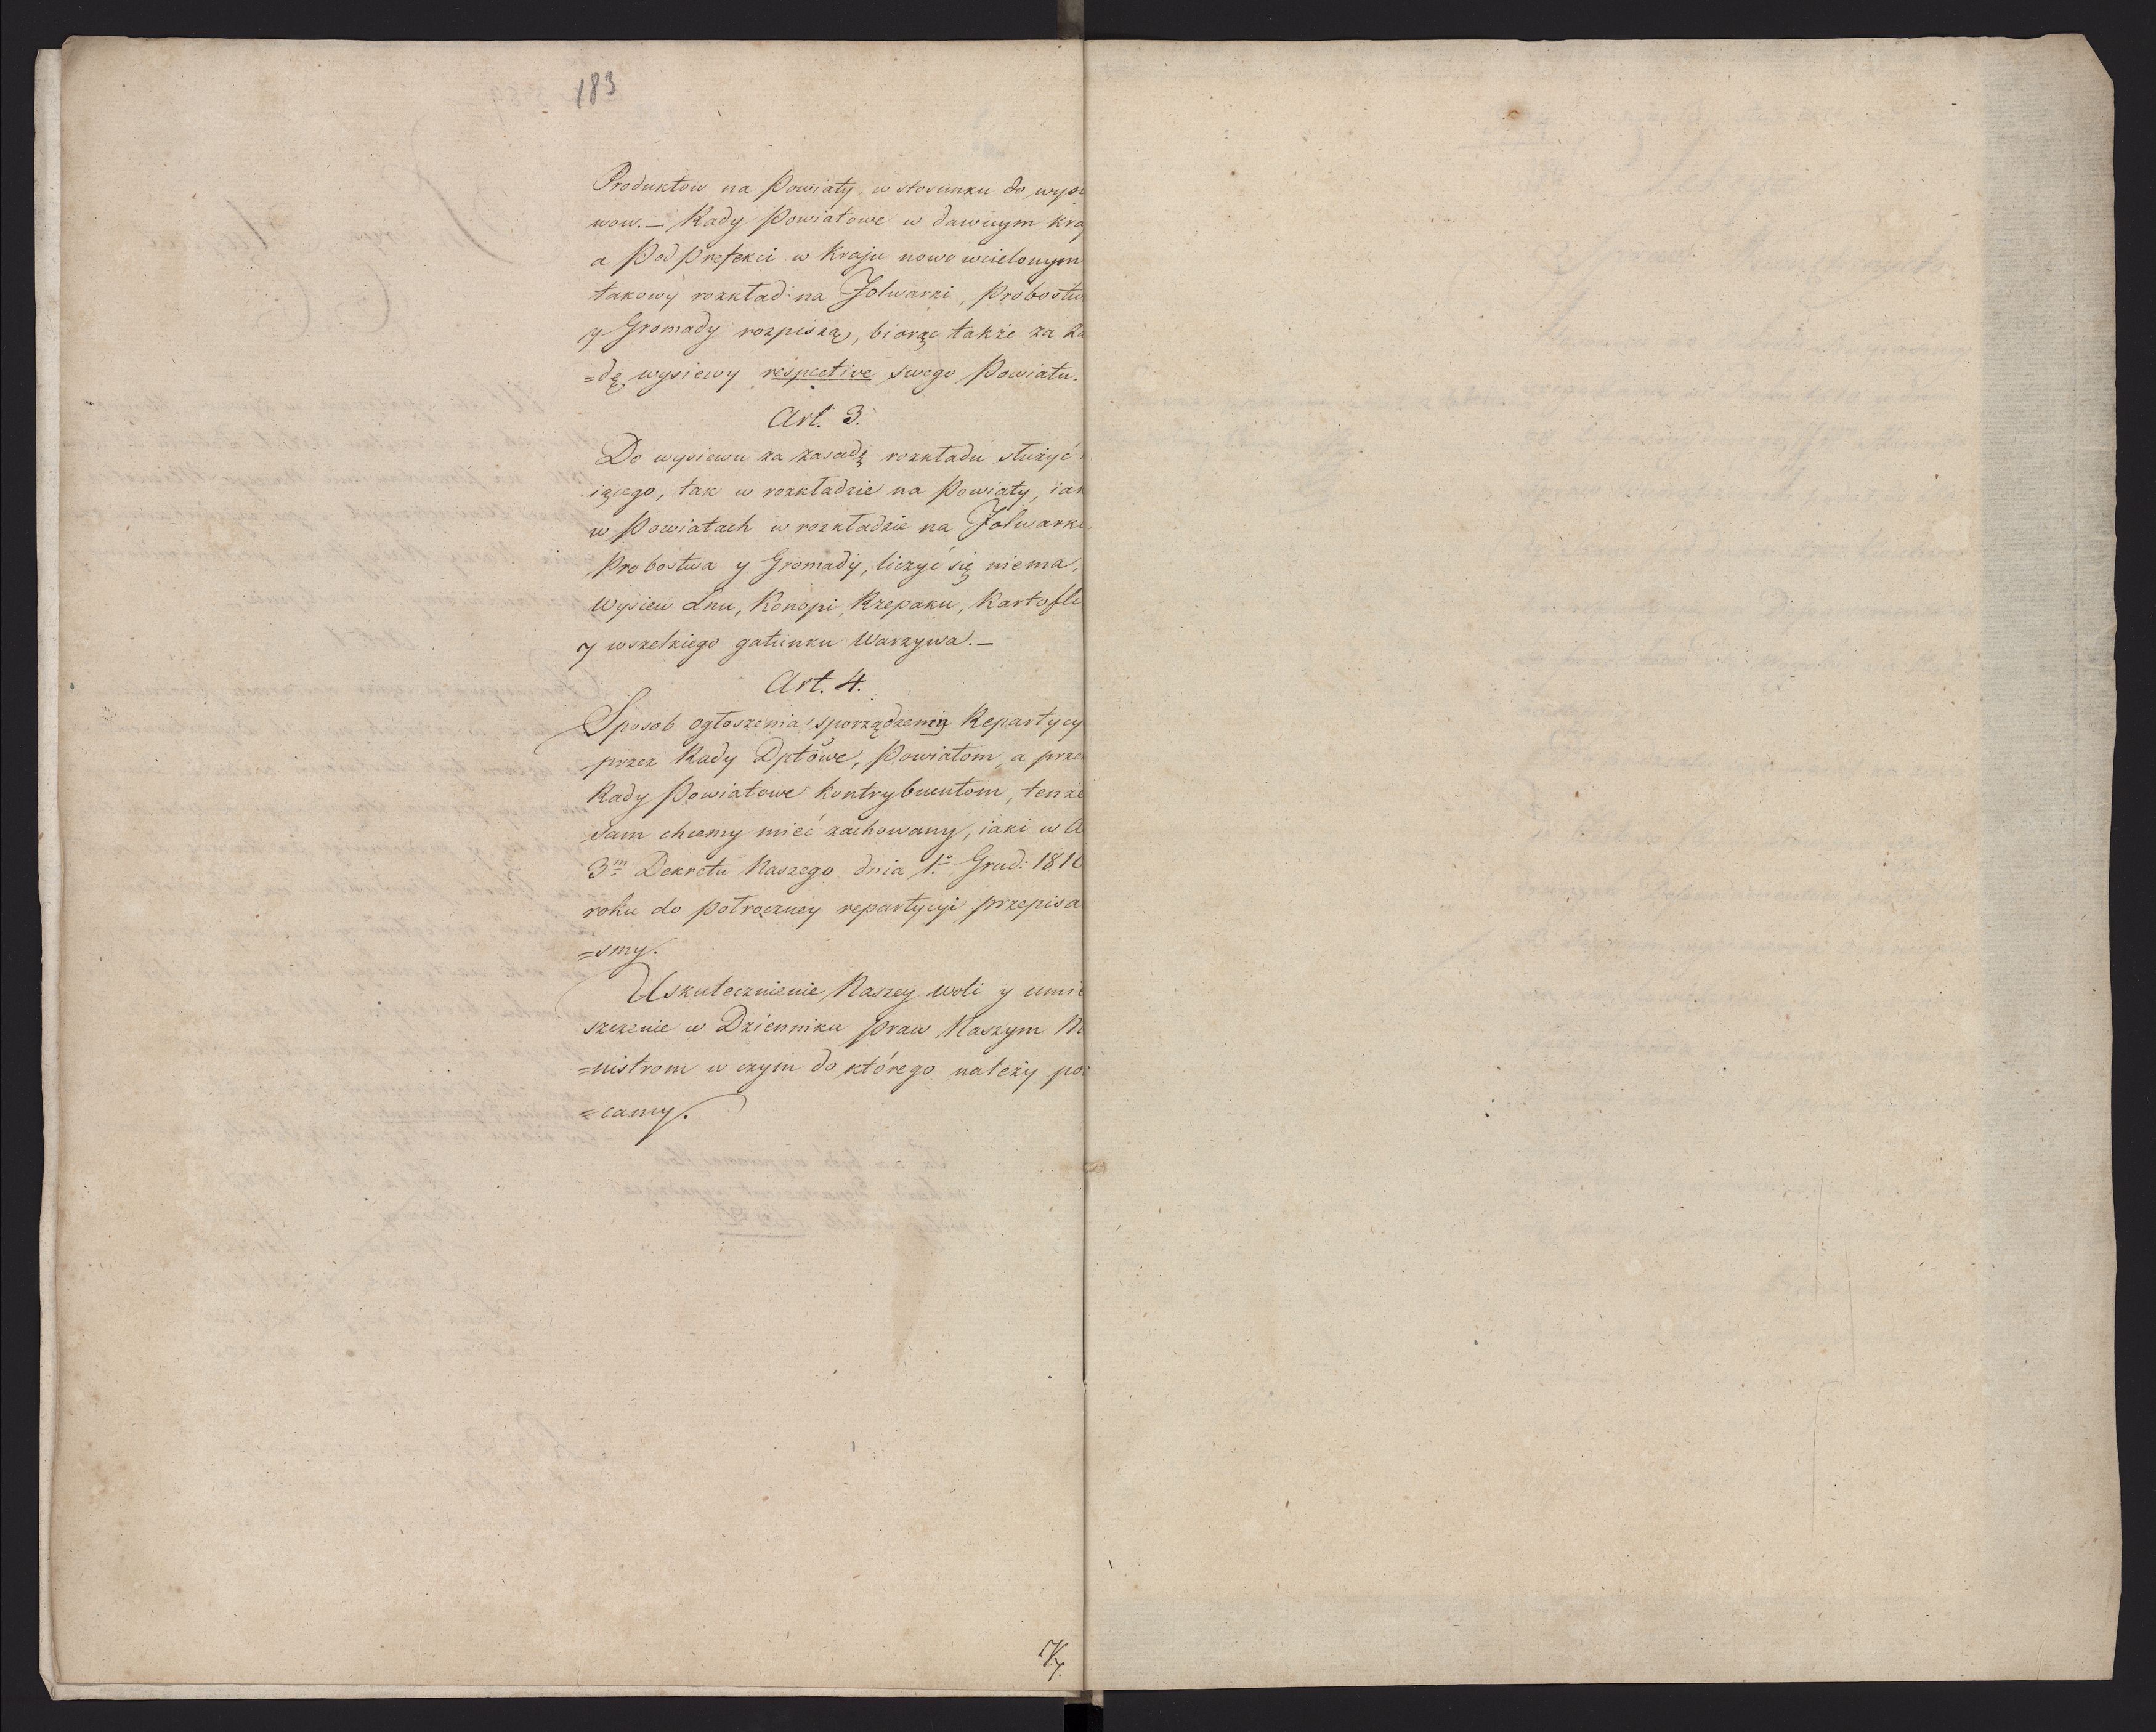 183
Produktow na Powiaty, w stosunku do wysi
wow. – Rady Powiatowe w dawnym kra
a Pod Prefekci w Kraju nowo wcielonym
takowy rozkład na Folwarki, Probostw
y Gromady rozpiszą, biorąc także za Za
=dę wysiewy respective swego Powiatu.
Art. 3.
Do wysiewu za zasadę rozkładu służyć
iącego, tak w rozkładzie na Powiaty, iak
w Powiatach w rozkładzie na Folwarki
Probostwa y Gromady, liczyć się niema,
Wysiew Lnu, Konopi, Rzepaku, Kartofli
y wszelkiego gatunku Warzywa. –
Art. 4.
Sposob ogłoszenia sporządzeniu Repartycy
przez Rady Dptowe, Powiatom, a prze
Rady Powiatowe kontrybuentom, tenże
sam chcemy mieć zachowany, iaki w A
3m Dekretu Naszego dnia 1o Grud: 1810
roku do połroczney repartycyi przepisa
=smy.
Uskutecznienie Naszey woli y umie
szczenie w Dzienniku praw Naszym Mi
=nistrom w czym do którego należy po
=camy.